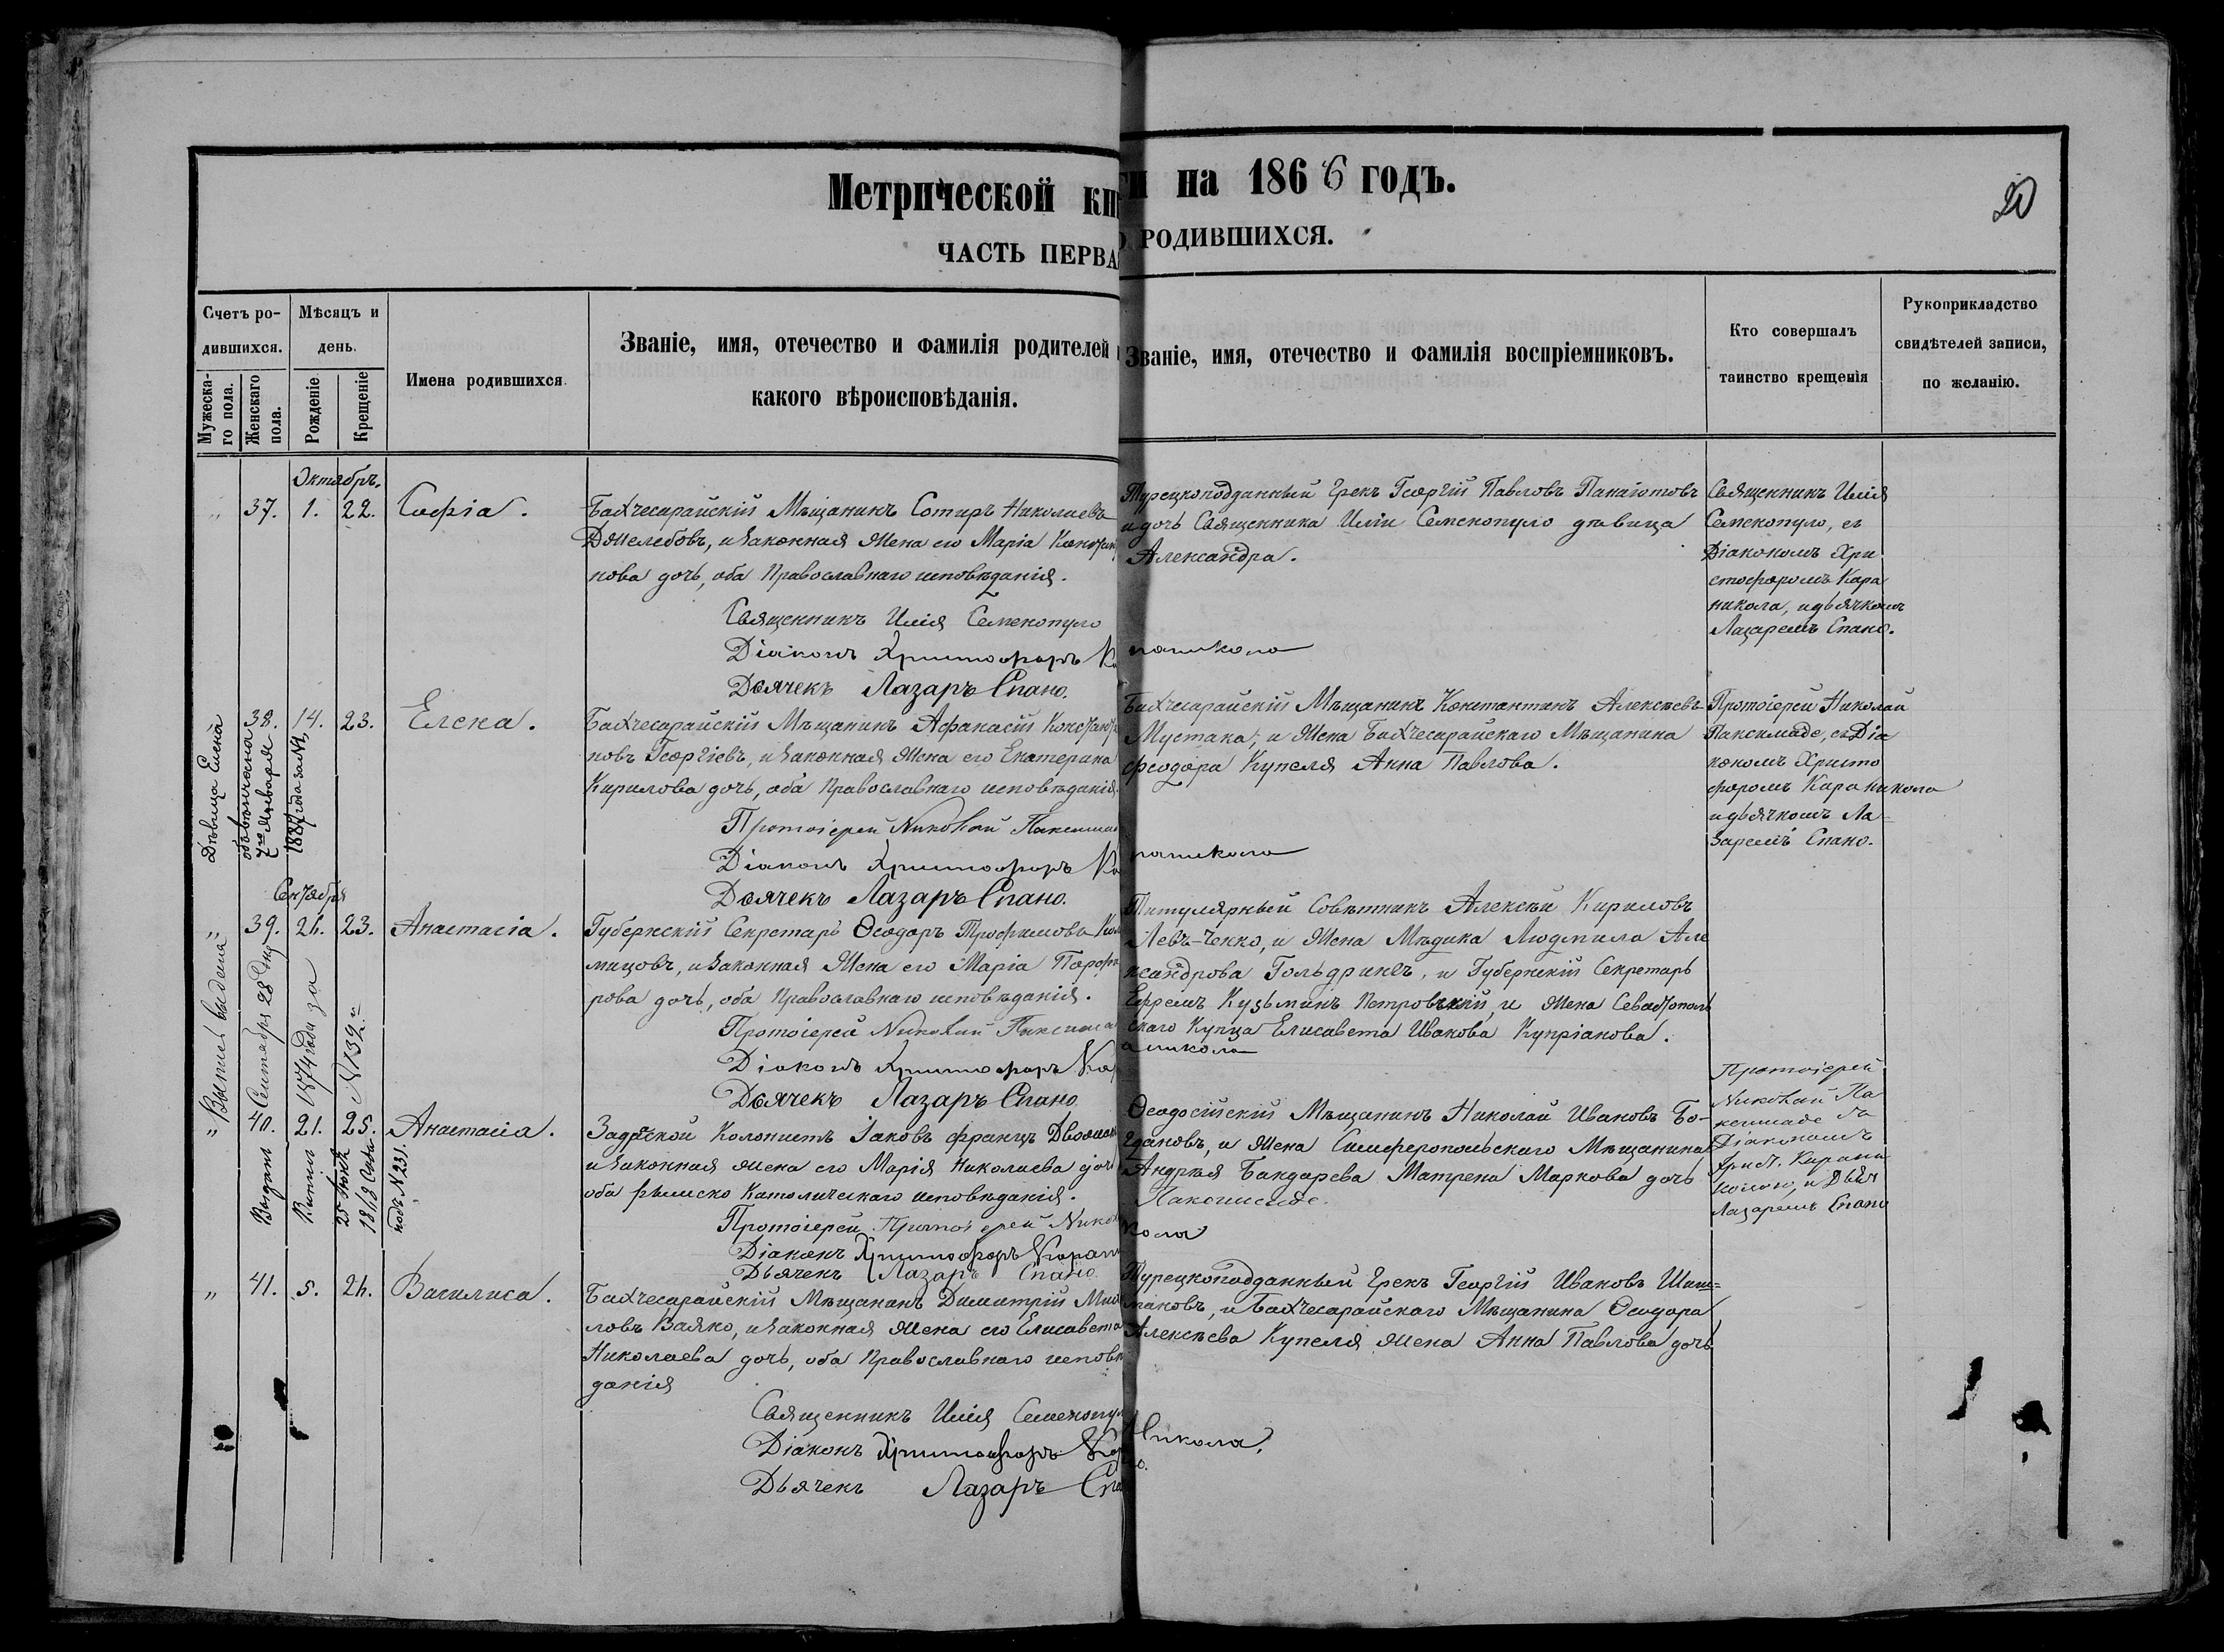 Метрической кн ги на 1866 годъ.
20
ЧАСТЬ ПЕРВА О РОДИВШИХСЯ.
Счетъ ро-
дившихся.
Мужеска-
го пола.
Женскаго
пола.
Мѣсяцъ и
день.
Рожденіе
Крещеніе
Имена родившихся.
Званіе, имя, отечество и фамилія родителей
какого вѣроисповѣданія.
Званіе, имя, отечество и фамилія воспріемниковъ.
Кто совершалъ
таинство крещенія
Рукоприкладство
свидѣтелей записи,
по желанію.
Октябрь.
„ 37. 1. 22. Софія.
Бахчесарайскій Мѣщанинъ Сотиръ Николаевъ
Джелебовъ, и законная жена его Марія
нова дочь, оба Православнаго исповѣданія.
Священникъ Илія Семенопуло
Діаконъ Христофоръ Ка
раникола
Дьячекъ Лазарь Спано.
Турецкоподданный Грекъ Георгій Павловъ Панаіотовъ
и дочь Священника Иліи Семенопуло дѣвица
Александра.
Священникъ Илія
Семенопуло, съ
Діакономъ Хри
стофоромъ Кара
никола, и дьячкомъ
Лазаремъ Спано.
38. 14. 23. Елена.
Дѣвица Елена
обвѣнчана
7го Января
1887 года за №1,
Бахчесарайскій Мѣщанинъ Афанасій Константи
новъ Георгіевъ, и законная жена его Екатерина
Кирилова дочь, оба Православнаго исповѣданія.
Протоіерей Николай Паксимад
Діаконъ Христофоръ Ка
раникола
Дьячекъ Лазарь Спано.
Бахчесарайскій Мѣщанинъ Константинъ Алексѣевъ
Мустака, и жена Бахчесарайскаго Мѣщанина
Феодора Купеля Анна Павлова.
Протоіерей Николай
Паксимаде, съ Діа
кономъ Христо
форомъ Караникола
и дьячкомъ Ла-
заремъ Спано.
Сентября
„ 39. 26. 23. Анастасія.
Выпись выдана
Сентября 28 дня
1874 года за
№ 139.
Губернскій Секретарь Ѳеодоръ Трофимовъ
мицовъ, и законная жена его Марія Порфи
рова дочь, оба Православнаго исповѣданія.
Протоіерей Николай Паксима
Діаконъ Христофоръ Кар
аникола
Дьячекъ Лазарь Спано
Титулярный Совѣтникъ Алексѣй Кириловъ
Левъ-Ченко, и жена Мѣдика Людмила Але
ксандрова Гольдрингъ, и Губернскій Секретарь
Ефремъ Кузьминъ Петровскій, и жена Севастополь
скаго Купца Елисавета Иванова Купріанова.
„ 40. 21. 25. Анастасія.
25 Іюня
подъ №231.
Колонистъ Іаковъ Францъ
и законная жена его Марія Николаева дочь
оба римско Католическаго исповѣданія.
Протоіерей Протоіерей Нико
Діаконъ Христофоръ Карани
кола
Дьячекъ Лазарь Спано
Ѳеодосійскій Мѣщанинъ Николай Ивановъ Бо-
гдановъ, и жена Симферопольскаго Мѣщанина
Андрея Бандарева Матрена Маркова дочь
Протоіерей
Николай Па
ксимаде съ
Діакономъ
Христ. Карани
колою, и Дьяч
Лазаремъ Спано
„ 41. 5. 26. Василиса.
Бахчесарайскій Мѣщанинъ Димитрій Миха
ловъ Вайно, и законная жена его Елисавета
Николаева дочь, оба Православнаго исповѣ
данія
Священникъ Илія Семенопул
Діаконъ Христофоръ Кар
никола.
Дьячекъ Лазарь Спа
но.
Турецкоподданный Грекъ Георгій Ивановъ Шиш=
мановъ, и Бахчесарайскаго Мѣщанина Ѳеодора
Алексѣева Купеля жена Анна Павлова дочь